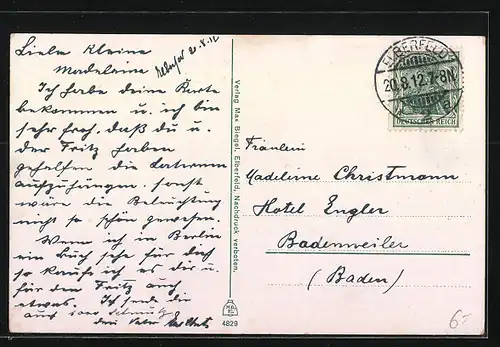 Liebe kleine
Madeleine
Ich habe deine Karte
bekommen u. ich bin
sehr froh, daß du u.
der Fritz haben
geholfen die Laternen
aufzuhängen. sonst
wäre die Beleuchtung
nicht so schön gewesen.
Wenn ich in Berlin
ein Buch sehe für dich
so kaufe ich es dir u.
für den Fritz auch
etwas. Ich sende dir
auch 1000
dein Vater
Verlag Max Biegel, Elberfeld, Nachdruck verboten.
4829
ELBERFELD
20.8.12.7-8N
DEUTSCHES REICH
Fräulein
Madeleine Christmann
Hotel Engler
Badenweiler
(Baden)
6.-